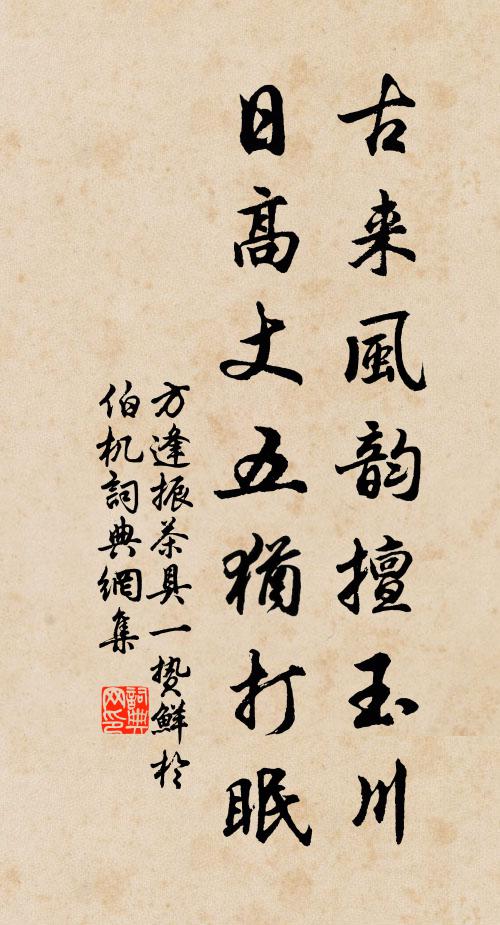 古来風韵擅玉川
日高丈五猶打眠
方逢振茶具一贽鮮於
伯机詞典網集
詞典网印